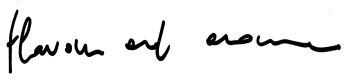 flavour and aroma